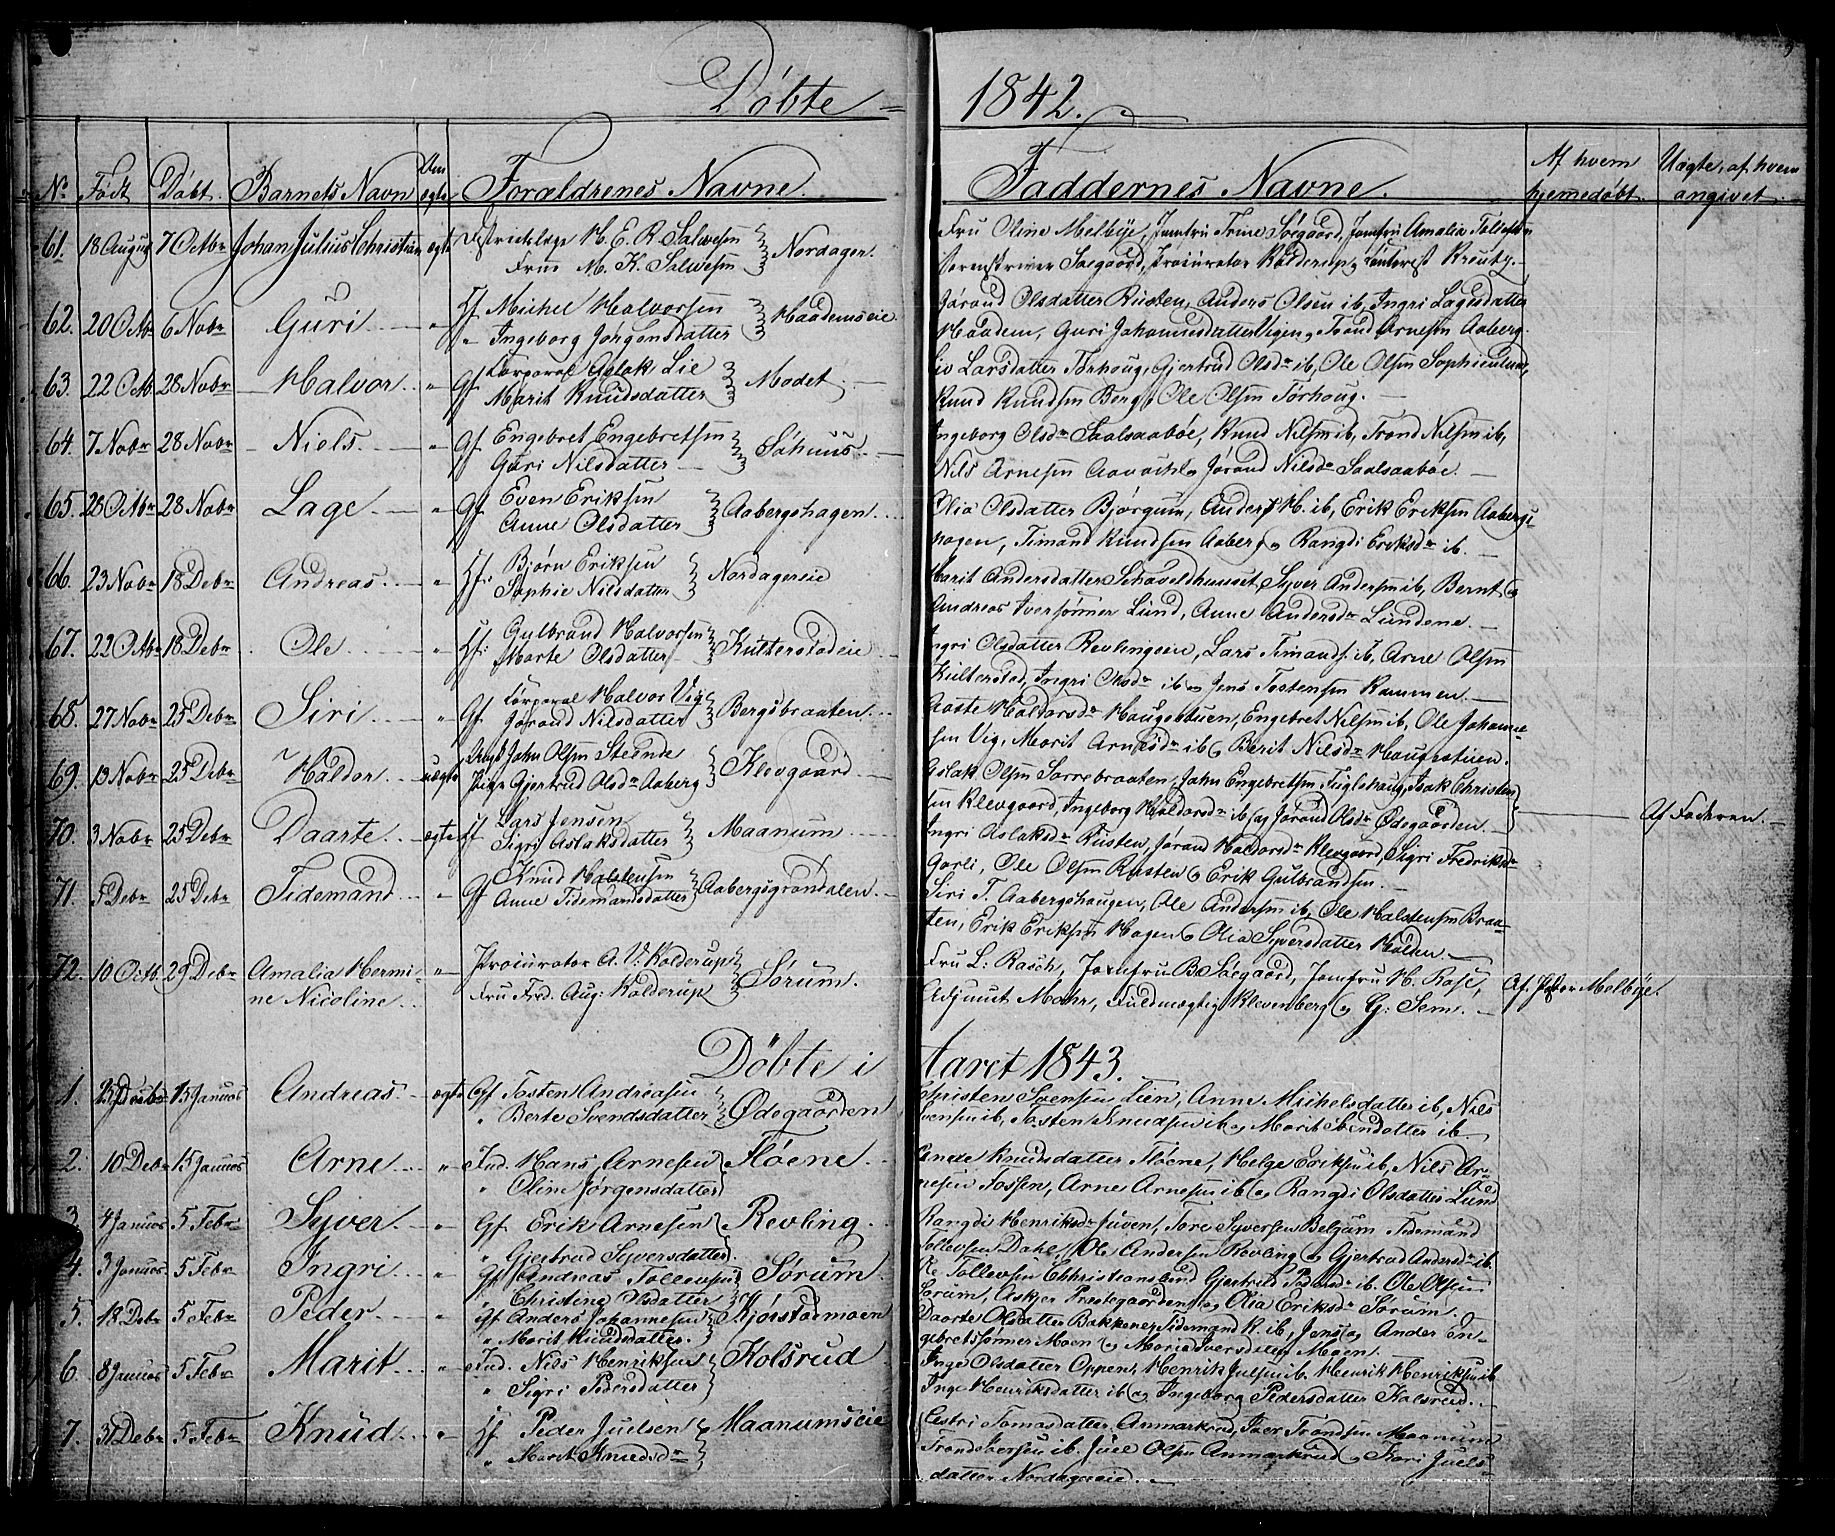 Döbte = 1842.
No Födt Döbt. Barnets Navn Om ægte Forældrenes Navne. Faddernes Navne. Af hvem hjemedøbt. Uægte, af hvem angivet.
61. 18 August 7 Octbr Johan Julius Christian ægte Districtslæge H. E. R. Salvesen
Frue M. K. Salvesen } Nordagen.
Fru Oline Melbye, Jomfru Trine Søegaard, Jomfru Amalia
Sorenskriver Søegaard, Procurator Kolderup
62. 20 Octbr 6 Nobr Guri — " Hf Michel Halvorsen
" Ingeborg Jørgensdatter } Haademseie.
Jörand Olsdatter Rusten, Anders Olsen ib, Ingri Lagesdatter
Haadem, Guri Johannesdatter Vigen og Trond Arnesen Aaberg.
63. 22 Octb. 28 Nobr Halvor " Gf Korporal Aslak Lie
Marit Knudsdatter } Modet
Liv Larsdatter Törhoug, Gjertrud Olsdr ib, Ole Olsen Sophienlund,
Knud Knudsen Berg, Ole Olsen Törhoug.
64. 7 Nobr 28 Nobr Niels " Gf Engebret Engebretsen
Guri Nilsdatter } Söhuus.
Ingeborg Olsdr Saalsaaböe, Knud Nilsen ib, Trond Nilsen ib,
Nils Arnesen og Jörand Nilsdr Saalsaaböe.
65. 28 Octbr 28 Nobr Lage " Gf. Even Eriksen
Anne Olsdatter } Aabergshagen.
Olia Olsdatter Bjørgum, Anders H. ib, Erik Eriksen Aabergs-
hagen, Timand Knudsen Aaberg og Rangdi Eriksdr ib.
66. 23 Nobr 18 Debr Andreas " Hf. Bjørn Eriksen
Sophie Nilsdatter } Nordagerseie
Marit Andersdatter Schavelhusset, Syver Andersen ib, Bernt og
Andreas Iversønner Lund, Anne Andersdr Lundene.
67. 22 Octbr 18 Debr Ole " Hf: Gulbrand Halvorsen
Marte Olsdatter } Kulterstadeie
Ingri Olsdatter Revlingeie, Lars Timands. ib, Arne Olsen
Kulterstad, Ingri Olsdr ib og Jens Tostensen Rammen.
68. 27 Nobr 25 Debr Siri " Gf Korporal Halvor Vig
Jørand Nilsdatter } Bergsbraaten.
Aaste Haldorsdr Haugestuen, Engebret Nilsen ib, Ole Johanne-
sen Vig, Marit Arnesdr ib og Berit Nilsdr Haugestuen.
69. 13 Nobr 25 Debr Haldor uægte John Olsen Steende
Pige Gjertrud Olsdr Aaberg } Klevgaard
Aslak Olsen Sorrebraaten, John Engebretsen Fuglehaug, Isak Christen-
sen Klevgaard, Ingeborg Haldorsdr ib og Jørand Olsdr Ødegaarden. Af Faderen.
70. 3 Nobr 25 Debr Daarte ægte Hf Lars Jensen
Sigri Aslaksdatter } Maanum
Ingri Aslaksdr Rusten, Jørand Haldorsdr Klevgaard, Sigri Fredriksdr
Garli, Ole Olsen Rusten og Erik Gulbrandsen.
71. 5 Debr 25 Debr Tidemand " Gf Knud Halstensen
Anne Tidemandsdatter } Aabergsgrøndalen.
Siri T. Aabergshaugen, Ole Andersen ib, Ole Halstensen Braa-
ten, Erik Eriksen Hagen og Olia Syversdatter Holden.
72. 10 Octb. 29 Debr Amalia Hermi-
ne Nicoline. " Procurator A. V. Kolderup
Fru Fred. Aug: Kolderup } Sørum.
Fru L: Rasch, Jomfru B. Søegaard, Jomfru H. Rose,
Adjunct Mohr, Fuldmægtig Klevenberg og G: Sem. Af Melbye.
Döbte i Aaret 1843.
1. 15 Januar Andreas ægte Gf Tosten Andreasen
" Berte Svendsdatter } Ødegaarden
Christen Svensen Lien, Anne Michelsdatter ib, Nils
Svensen ib, Tosten Knudsen ib og Marit Svendatter ib
2. 10 Debr 15 Januar Arne " Ind. Hans Arnesen
" Oline Jørgensdatter } Fløene
Knudsdatter Fløene, Helge Eriksen ib, Nils Ar-
nesen Fossen, Arne Arnesen ib og Rangdi Olsdatter Lund
3. 4 Januar 5 Febr Syver " Gf Erik Arnesen
" Gjertrud Syversdatter } Revling
Rangdi Henriksdr Juven, Tore Syversen Belgum Tidemand
Tollevsen Dahl, Ole Andersen Revling og Gjertrud Andersdr ib.
4. 3 Januar 5 Febr Ingri " Gf Andreas Tollevsen
" Christine Olsdatter } Sørum
Tollevsen Christianslund Gjertrud ib. Ole Olsen
Sørum, Asker Præstegaarden og Olia Eriksdr Sørum.
5. 18 Debr 5 Febr Peder " Gf Anders Johannesen
" Marit Knudsdatter. } Kjørstadmoen
Daarte Olsdatter Bakkene, Tidemand K. ib, Jens og Ander En-
gebretsønner Moen og Maria Iversdatter Moen.
6. 8 Januar 5 Febr Marit " Ind. Nils Henriksen
" Sigri Pedersdatter } Kolsrud
Inge Olsdatter Oppen, Henrik Julsen ib. Henrik Henriksen ib
Inge Henriksdatter ib og Ingeborg Pedersdatter Kolsrud.
7. 31 Debr 5 Febr Knud " Hf Peder Juelsen
" Marit Knudsdr } Maanumseie
Tomasdatter Anmarkrud, Iver Trondsen Maanum
Trond Iversen ib. Juel Olsen Anmarkrud og Kari Juels-
datter Nordagereie.